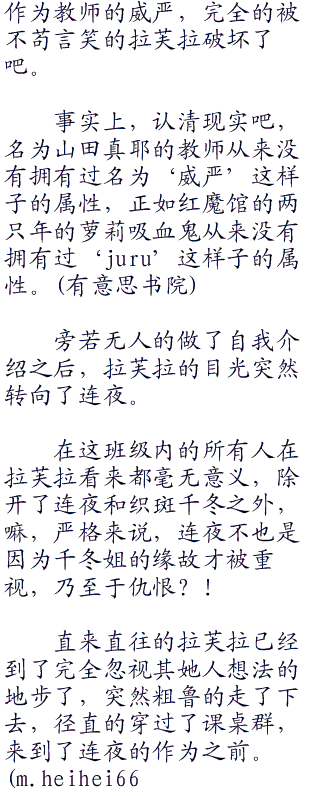 作为教师的威严，完全的被
不苟言笑的拉芙拉破坏了
吧。
事实上，认清现实吧，
名为山田真耶的教师从来没
有拥有过名为‘威严’这样
子的属性，正如红魔馆的两
只年的萝莉吸血鬼从来没有
拥有过‘juru’这样子的属
性。(有意思书院)
旁若无人的做了自我介
绍之后，拉芙拉的目光突然
转向了连夜。
在这班级内的所有人在
拉芙拉看来都毫无意义，除
开了连夜和织斑千冬之外，
嘛，严格来说，连夜不也是
因为千冬姐的缘故才被重
视，乃至于仇恨？！
直来直往的拉芙拉已经
到了完全忽视其她人想法的
地步了，突然粗鲁的走了下
去，径直的穿过了课桌群，
来到了连夜的作为之前。
(m.heihei66